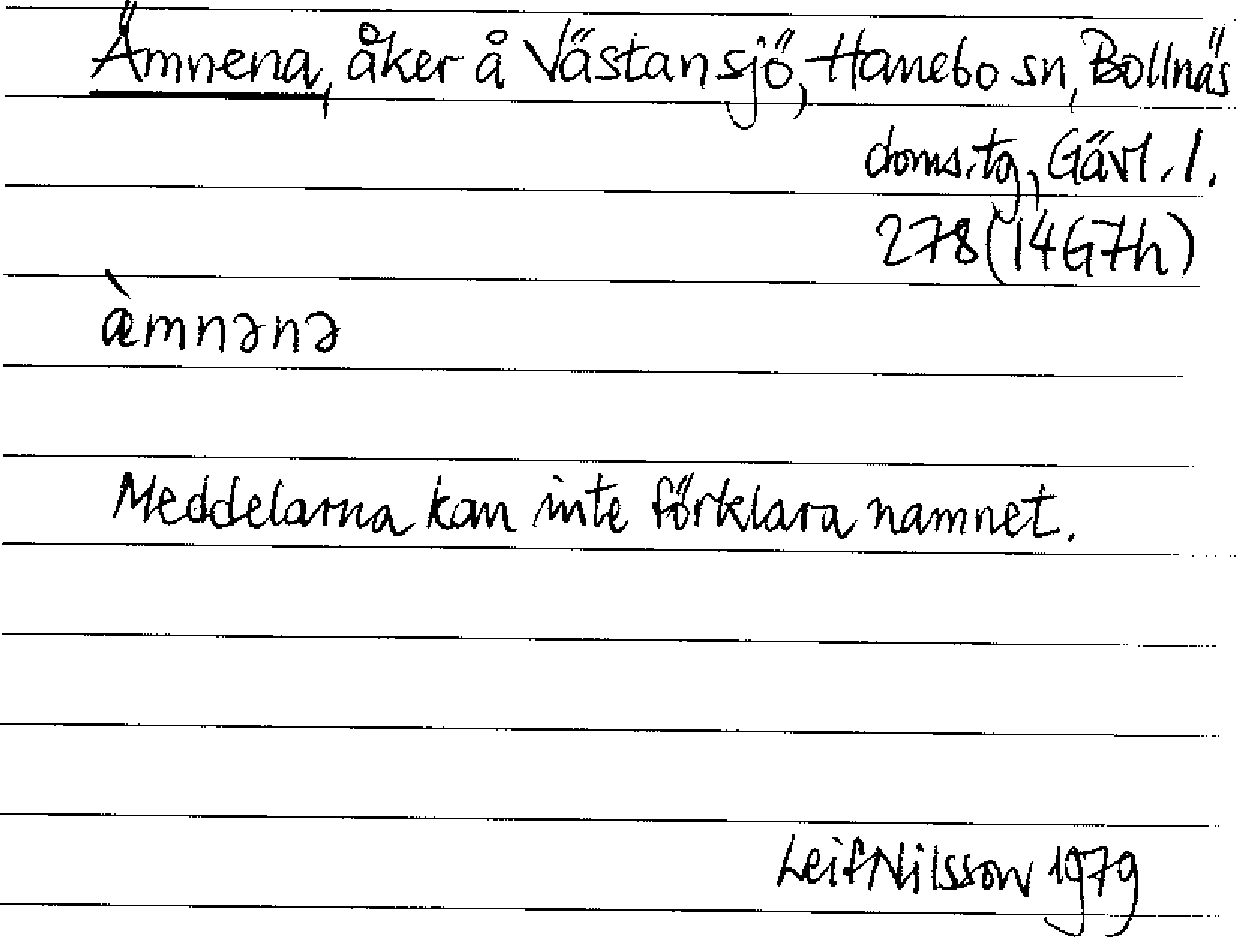 Ämnena, åker å Västansjö, Hanebo sn, Bollnäs
doms.tg, Gävl. l.
278 (14G7h)
æ̀mnənə
Meddelarna kan inte förklara namnet.
Leif Nilsson 1979